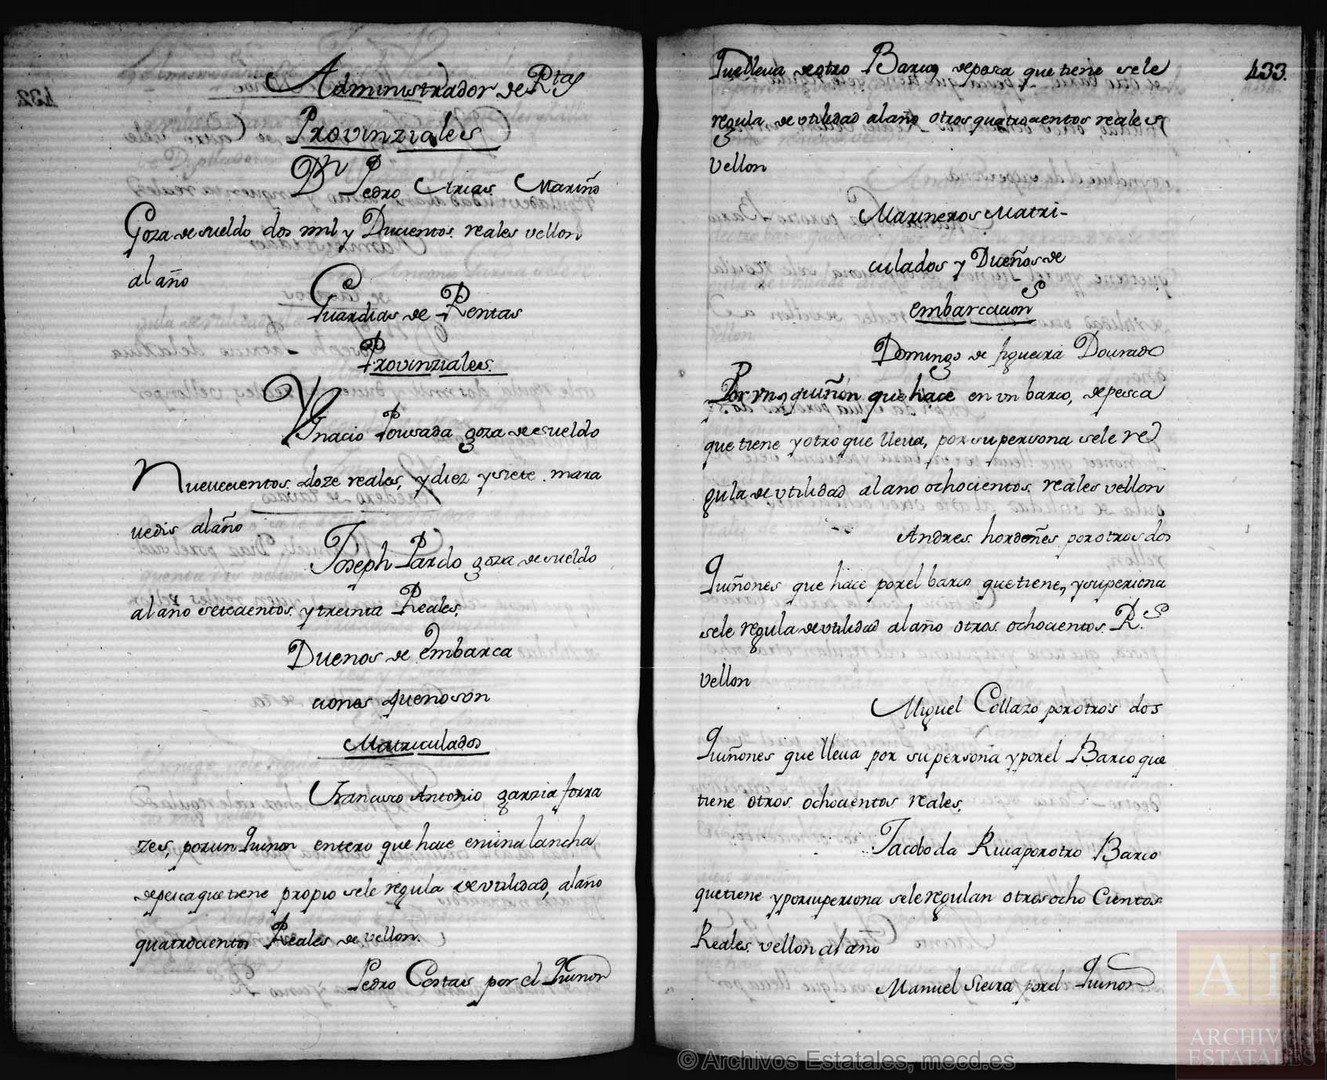 Administrador de Rtas
Provinziales
Dn Pedro Arias Mariño
Goza de sueldo dos mil y Ducientos reales vellon
al año
Guardias de Rentas
Provinziales.
Ygnacio Pousada goza de sueldo
Nuevecientos doze reales, y diez y siete mara
vedis al año
Joseph Pardo goza de sueldo
al año setecientos y treinta Reales.
Duenos de embarca
ciones que no són
Matriculados
Francisco Antonio garzia forra
zes, por un Quinon entero que hace en una lancha
de pesca que tiene propio se le régula de utilidad al año
quatrocientos Reales de vellon.
Pedro Costas por el Quinon
Que lleva de otro Barco de pesca que tiene se le
433.
régula de utilidad al año otros quatrocientos reales
vellon
Marineros Matri-
culados y Dueños de
embarcacions
Domingo de figueira Dourado
Por vn quiñón que hace en vn barco, de pesca
que tiene y otro que lleva, por su persona se le re
gula de vtilidad al año ochocientos reales vellon
Andres hordeñes por otros dos
Quiñones que hace por el barco que tiene, y su persona
se le régula de utilidad al año otros ochocientos Rs
vellon
Miguel Collazo por otros dos
Quiñones que lleva por su persona y por el Barco que
tiene otros ochocientos reales,
Jacobo da Riva por otro Barco
que tiene y por su persona se le regulan otros ocho Cientos
Reales vellon al año
Manuel Sieira por el Quinon
432
© Archivos Estatales, mecd.es
AE
ARCHIVOS
ESTATALES